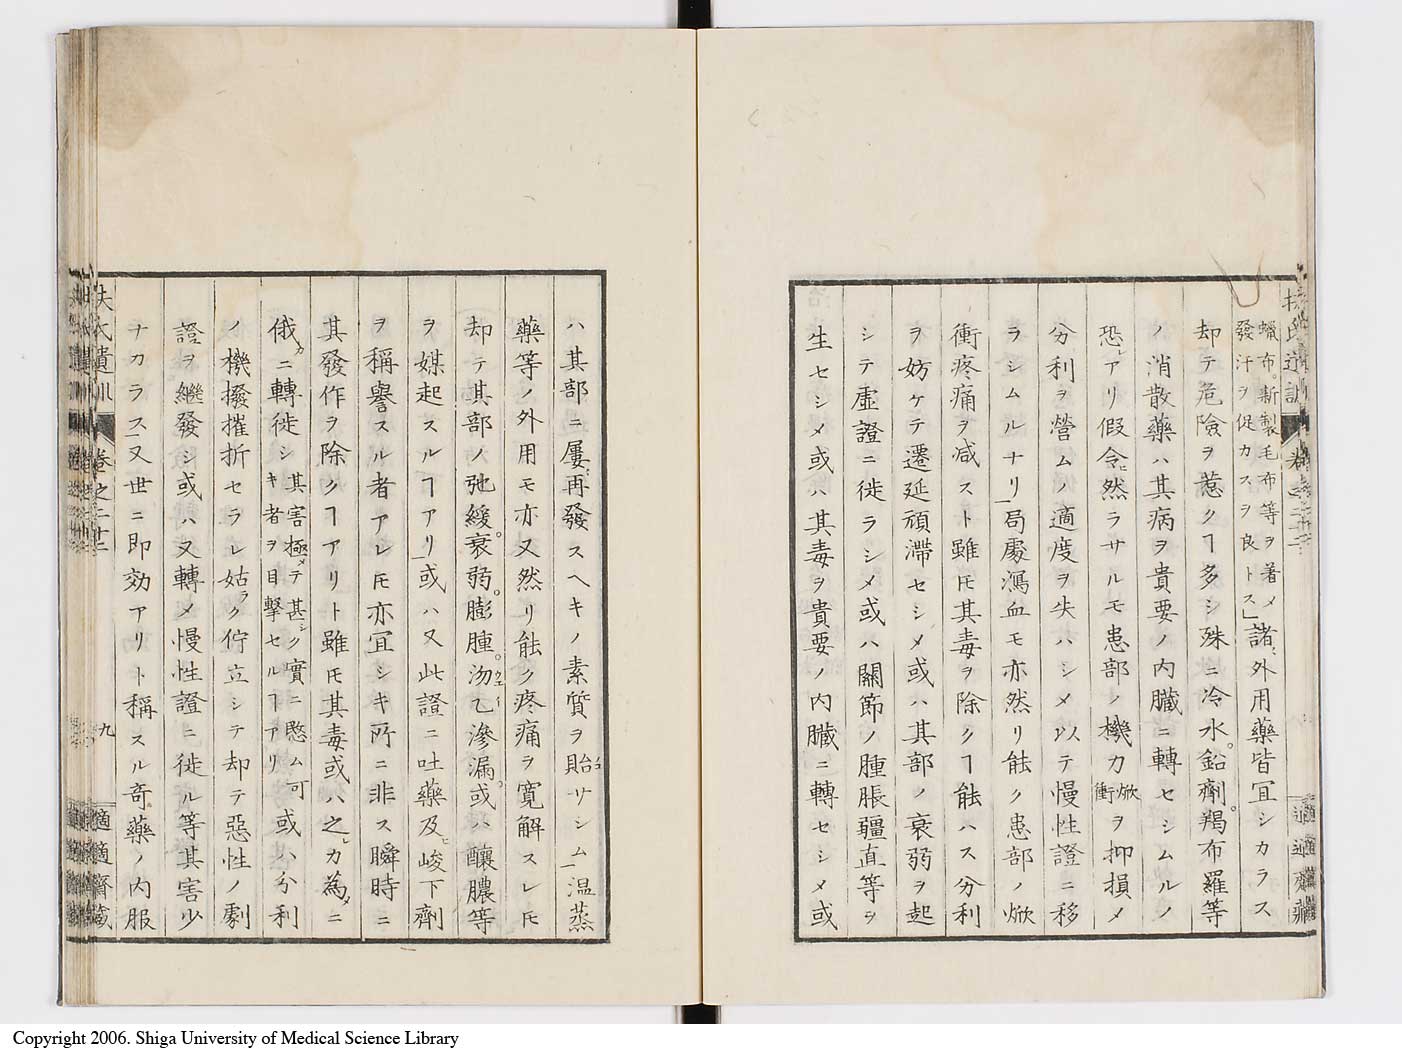 蠟布。新製毛布等ヲ著メ
發汗ヲ促カスヲ良トス」諸外用藥皆冝シカラス
却テ危險ヲ惹クヿ多シ殊ニ冷水。鉛劑。羯布羅等
ノ消散藥ハ其病ヲ貴要ノ內臟ニ轉セシムルノ
恐レアリ假令ヒ然ラサルモ患部ノ機力焮衝ヲ抑損メ
分利ヲ營ムノ適度ヲ失ハシメ以テ慢性證ニ移
ラシムルナリ」局處瀉血モ亦然リ能ク患部ノ焮
衝疼痛ヲ减スト雖モ其毒ヲ除クヿ能ハス分利
ヲ妨ケテ遷延頑滯セシメ或ハ其部ノ衰弱ヲ起
シテ虛證ニ徙ラシメ或ハ關節ノ腫脹彊直等ヲ
生セシメ或ハ其毒ヲ貴要ノ內臟ニ轉セシメ或
ハ其部ニ屢再發スヘキノ素質ヲ貽サシム」温蒸
藥等ノ外用モ亦又然リ能ク疼痛ヲ寬解スレ𪜈
却テ其部ノ弛緩。衰弱。膨腫。沕乙滲漏。或ハ釀膿等
ヲ媒起スルヿアリ」或ハ又此證ニ吐藥及ヒ峻下劑
ヲ稱譽スル者アレ𪜈亦冝シキ所ニ非ス瞬時ニ
其發作ヲ除クヿアリト雖𪜈其毒或ハ之レカ為メニ
俄カニ轉徙シ其害極メテ甚シク實ニ愍ム可キ者ヲ目擊セルヿアリ或ハ分利
ノ機撥摧折セラレ姑ラク佇立シテ却テ惡性ノ劇
證ヲ繼發シ或ハ又轉メ慢性證ニ徙ル等其害少
ナカラス」又世ニ即効アリト稱スル奇藥ノ內服
扶氏遺訓
卷之二十二
九
適適齋藏
Copyright 2006. Shiga University of Medical Science Library